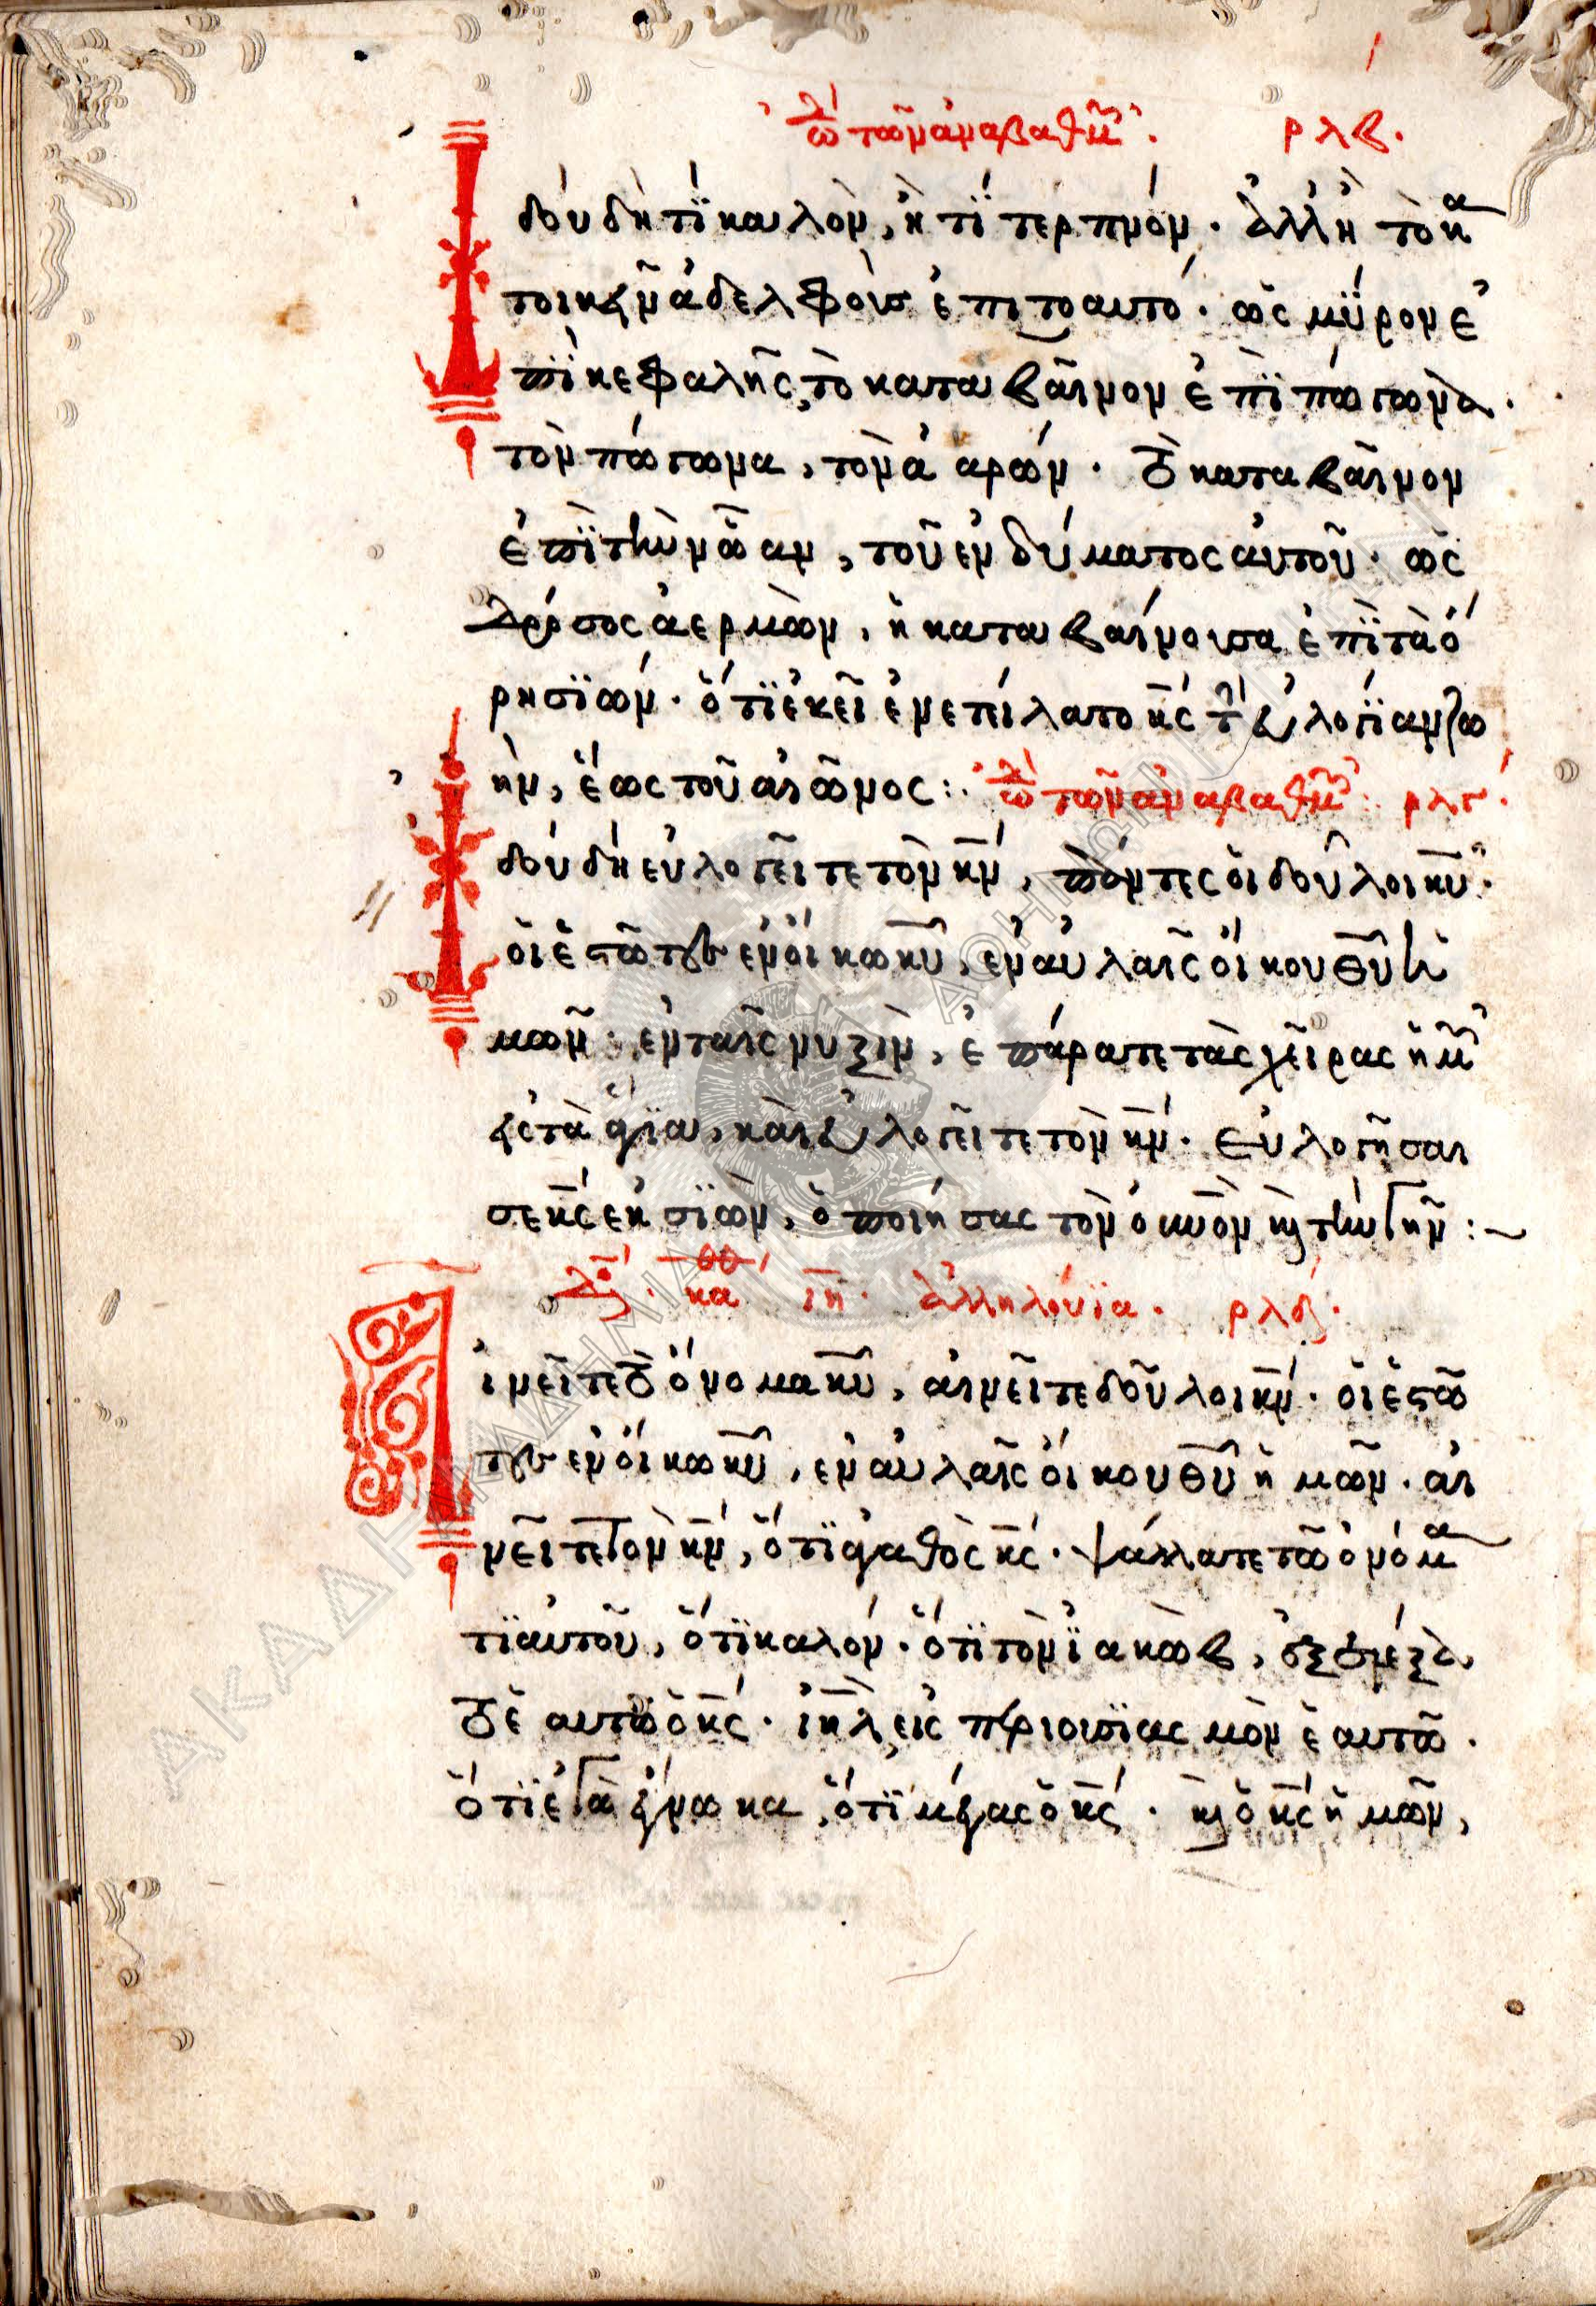 ὠδὴ τῶν ἀναβαθμῶν. ρλβ.
Ἰδοὺ δὴ τί καλὸν, ἢ τί τερπνόν. ἀλλ' ἢ τὸ κα
τοικεῖν ἀδελφοὺς ἐπιτοαυτό. ὡς μύρον ἐ
πὶ κεφαλῆς, τὸ καταβαῖνον ἐπὶ πώγωνα.
τὸν πώγωνα, τὸν ἀαρών. τὸ καταβαῖνον
ἐπὶ τὴν ὤαν, τοῦ ἐνδύματος αὐτοῦ. ὡς
δρόσος ἀερμὼν, ἡ καταβαίνουσα ἐπὶ τὰ ὄ
ρη σϊών. ὅτι ἐκεῖ ἐνετείλατο κς τὴν εὐλογίαν ζω
ὴν, ἕως τοῦ αἰῶνος: ὠδὴ τῶν ἀναβαθμῶν: ρλγ.
Ἰδοὺ δὴ εὐλογεῖτε τὸν κν, πάντες οἱ δοῦλοι κυ.
οἱ ἑστῶτες ἐν οἴκω κυ, ἐν αὐλαῖς οἴκου θυ ἡ
μῶν. ἐν ταῖς νυξὶν, ἐπάρατε τὰς χεῖρας ἡμῶν
εἰς τὰ ἅγια, καὶ εὐλογεῖτε τὸν κν. Εὐλογήσαι
σε κς ἐκ σϊὼν, ὁ ποιήσας τὸν ουνον καὶ τὴν γῆν:~
κα ιη. ἀλληλούϊα. ρλδ.
Αἰνεῖτε τὸ ὄνομα κυ, αἰνεῖτε δοῦλοι κν. οἱ ἑστῶ
τες ἐν οἴκω κυ, ἐν αὐλαῖς οἴκου θυ ἡμῶν. αἰ
νεῖτε τὸν κν, ὅτι ἀγαθὸς κς. ψάλλατε τῶ ὀνόμα
τι αὐτοῦ, ὅτι καλόν. ὅτι τὸν ϊακὼβ, ἐξελέξα
το ἑαυτῶ ὁ κς. ιηλ εἰς περιουσίας μὸν ἑαυτῶ.
ὅτι ἐγὼ ἔγνωκα, ὅτι μέγας ὁ κς. καὶ ὁ κς ἡμῶν,
ΑΚΑΔΗΜΙΑ ΑΘΗΝΩΝ